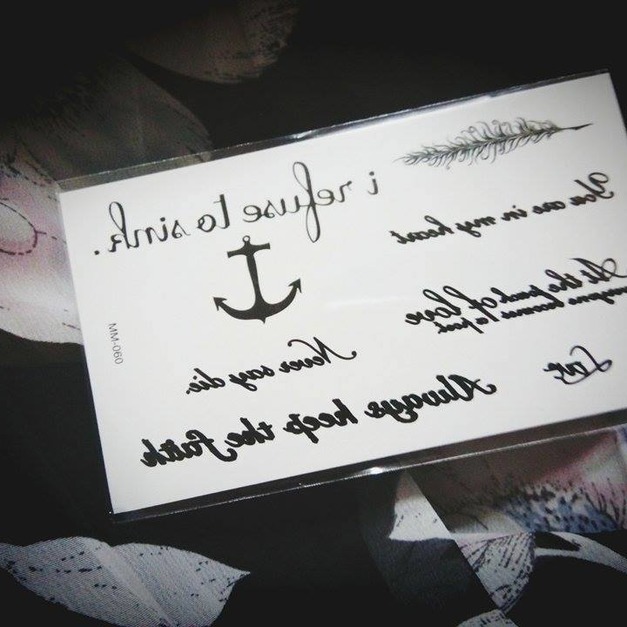 i refuse to sink.
You are in my heart
At the touch of love
everyone becomes a poet
Love
Never say die.
Always keep the faith
MM-060